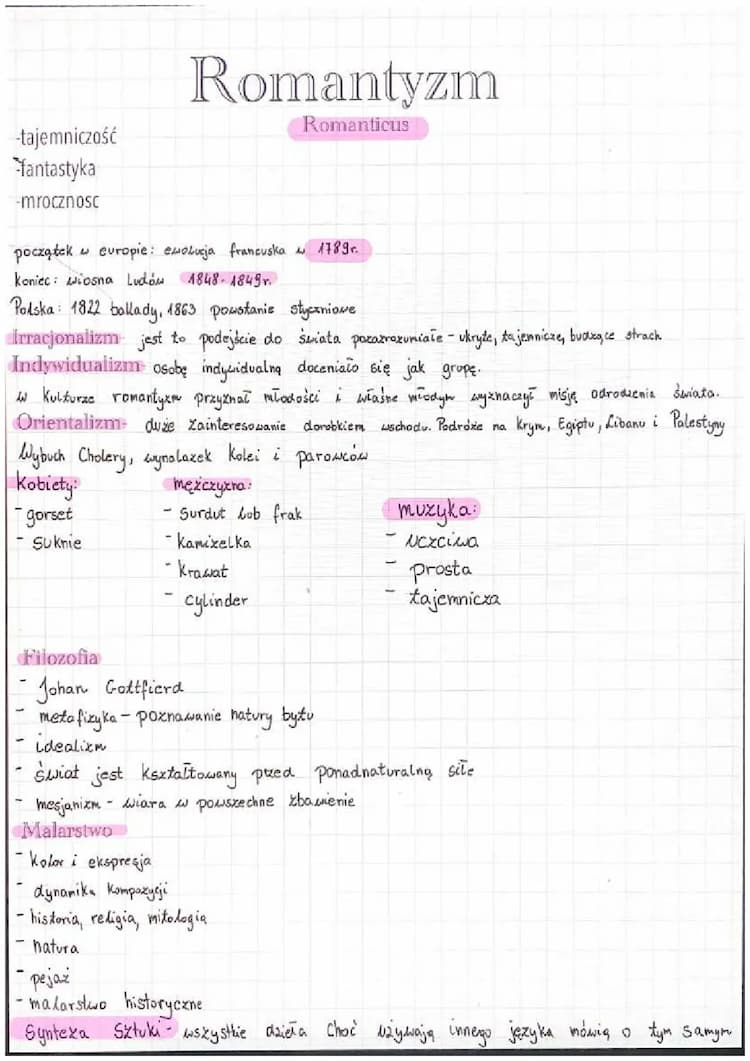 Romantyzm
Romanticus
-tajemniczość
-fantastyka
-mrocznosc
początek w europie: ewolucja francuska w 1789r.
koniec: wiosna Ludów 1848-1849r.
Polska: 1822 ballady, 1863 powstanie styczniowe
Irracjonalizm- jest to podejście do świata pozazrozumiałe - ukryte, tajemnicze, budzące strach
Indywidualizm- osobę indywidualną doceniało się jak grupę.
w kulturze romantyzm przyznał młodości i właśne młodym wyznaczył misję odrodzenia świata.
Orientalizm- duże zainteresowanie dorobkiem wschodu. Podróże na Krym, Egiptu, Libanu i Palestyny
Wybuch Cholery, wynalazek Kolei i parowców
Kobiety:
- gorset
- suknie
mężczyzna:
- Surdut lub frak
- kamizelka
- krawat
- cylinder
muzyka:
- uczciwa
- prosta
- tajemnicza
Filozofia
- Johan Gottfierd
- metafizyka - poznawanie natury bytu
- idealizm
- świat jest kształtowany przed ponadnaturalną siłe
- mesjanizm - wiara w powszechne zbawienie
Malarstwo
- kolor i ekspresja
- dynamika kompozycji
- historia, religia, mitologia
- natura
- pejaż
- malarstwo historyczne
Synteza Sztuki - wszystkie dzieła choć używają innego języka mówią o tym samym